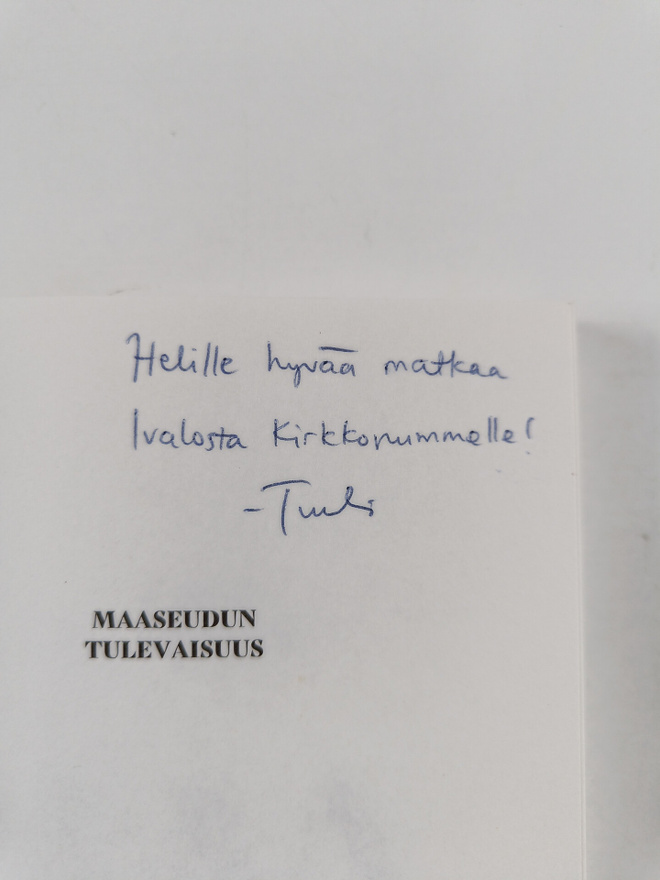 Helille hyvää matkaa
Ivalosta Kirkkonummelle!
- Tuuli
MAASEUDUN
TULEVAISUUS